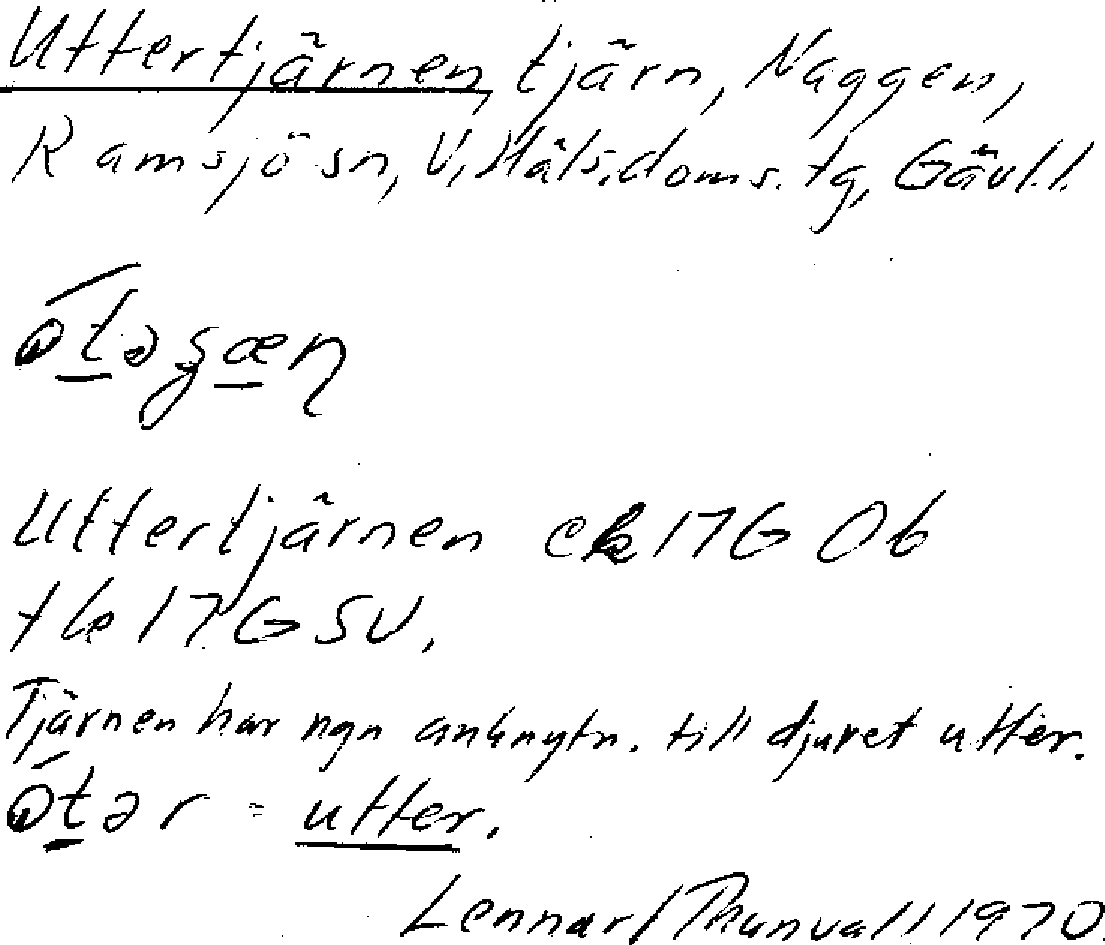 Uttertjärnen, tjärn, Naggen,
Ramsjö sn, V. Häls. doms. tg, Gävl. l.
ót̲əʂæ̲ɳ
Uttertjärnen ek 17G 0b
tk 17G SV.
Tjärnen har ngn anknytn. till djuret utter.
ót̲ər = utter.
Lennart Thunvall 1970